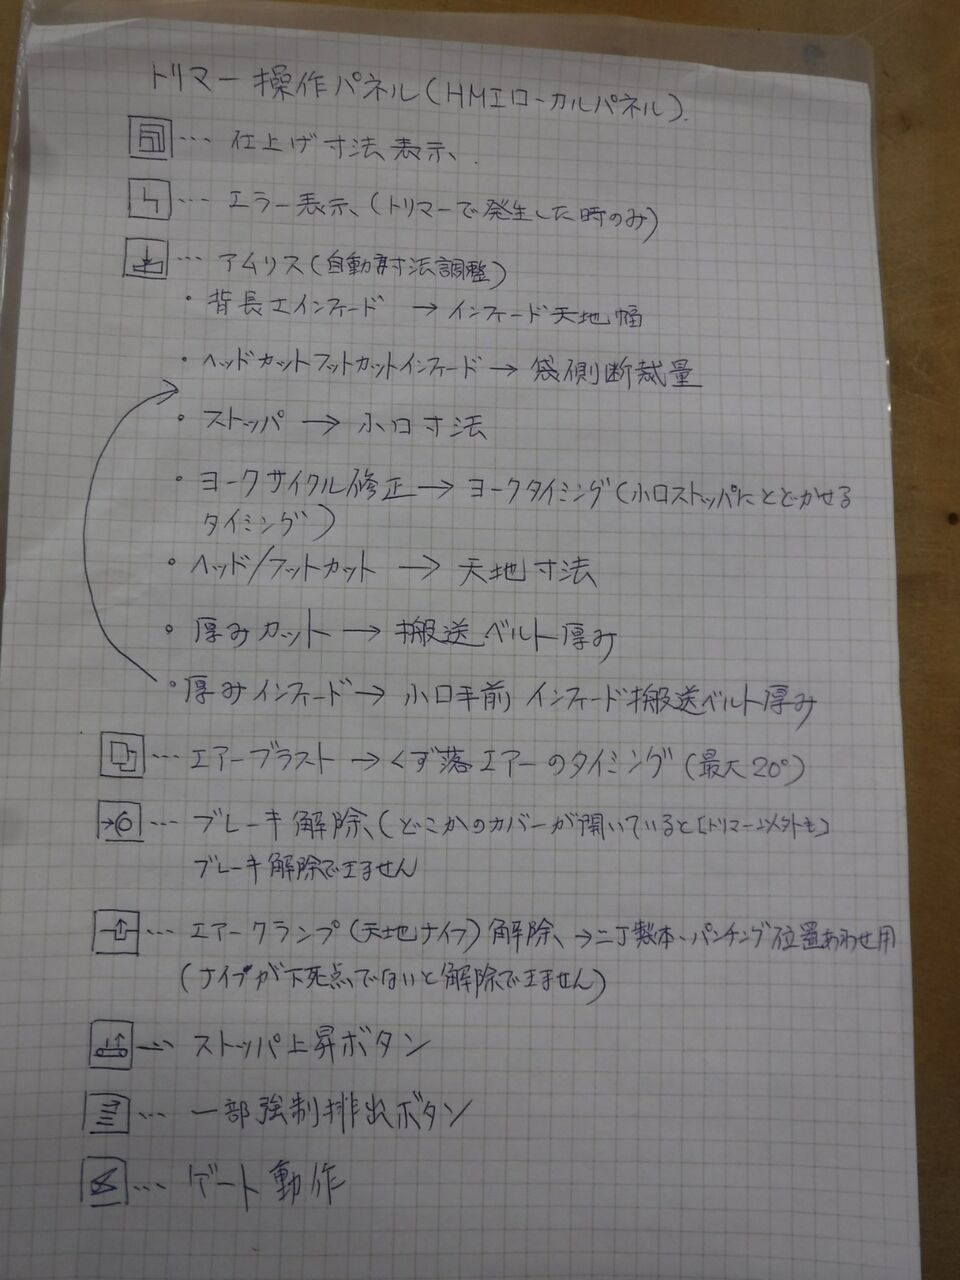 トリマー操作パネル(HMIローカルパネル).
… 仕上げ寸法表示、
… エラー表示、(トリマーで発生した時のみ)
… アムリス(自動寸法調整)
・背長さインフィード → インフィード天地幅
・ヘッドカットフットカットインフィード → 袋側断裁量
・ストッパ → 小口寸法
・ヨークサイクル修正 → ヨークタイミング(小口ストッパにとどかせる
タイミング)
・ヘッド/フットカット → 天地寸法
・厚みカット → 搬送ベルト厚み
・厚みインフィード → 小口手前 インフィード搬送ベルト厚み
… エアーブラスト → くず落エアーのタイミング(最大20°)
… ブレーキ解除、(どこかのカバーが開いていると[トリマー以外も]
ブレーキ解除できません
… エアークランプ(天地ナイフ)解除、→二丁製本・パンチング位置あわせ用
(ナイフが下死点でないと解除できません)
… ストッパ上昇ボタン
… 一部強制排出ボタン
… ゲート動作